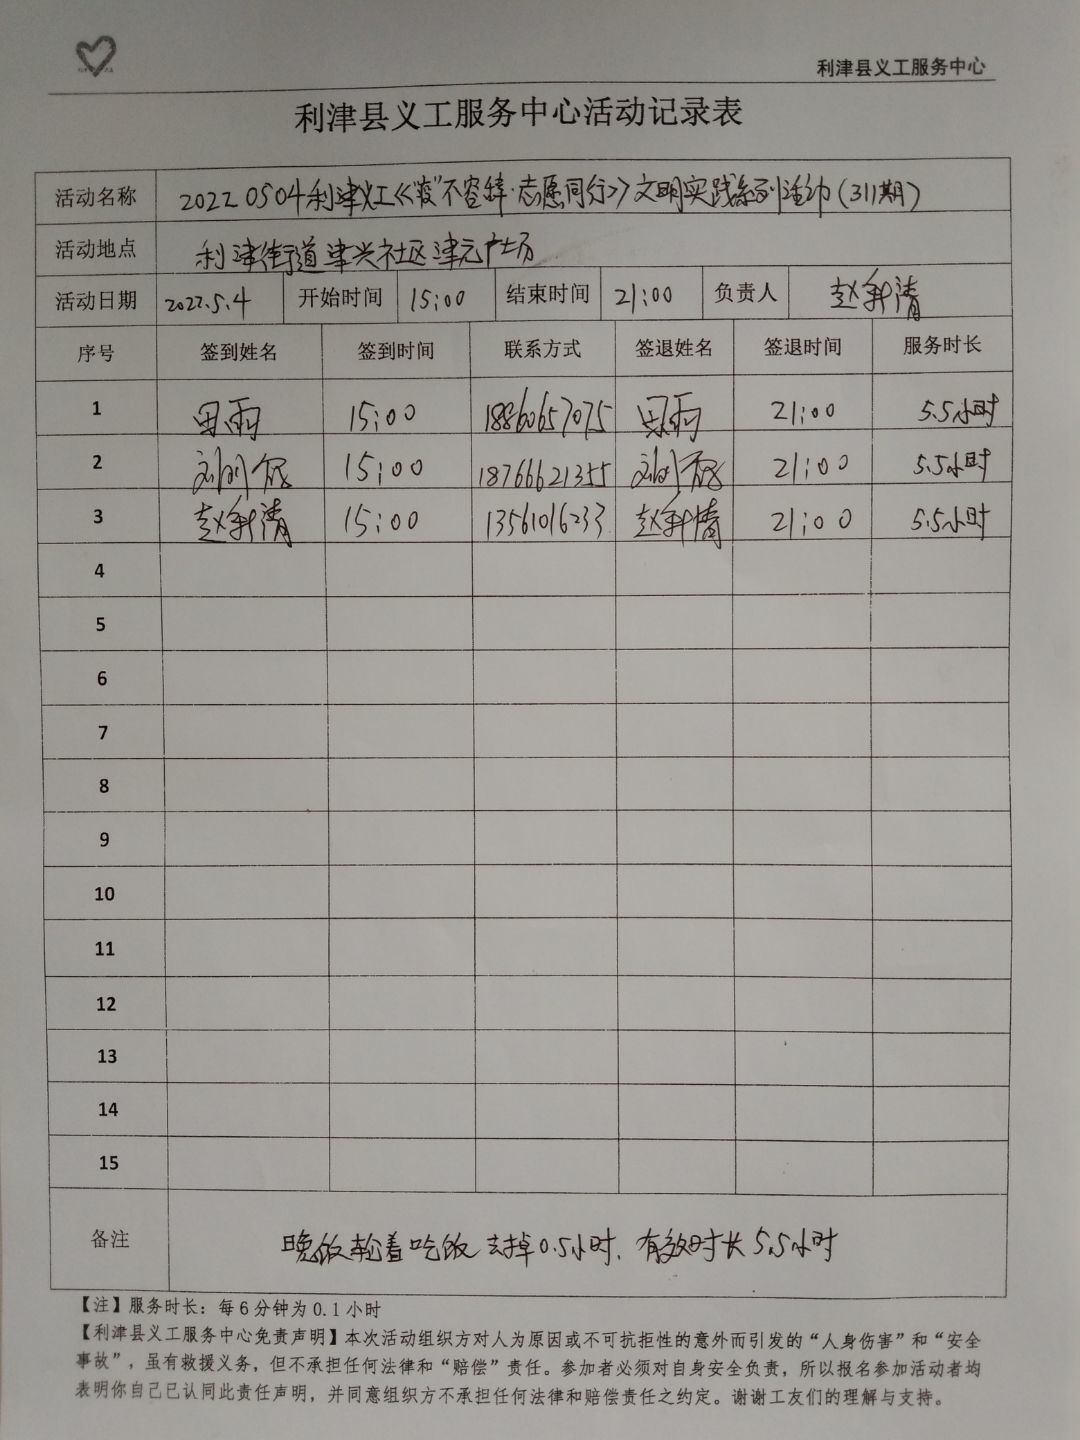 利津县义工服务中心
利津县义工服务中心活动记录表
活动名称 2022 0504利津义工《“疫”不容辞·志愿同行》文明实践系列活动(311期)
活动地点 利津街道津兴社区津元广场
活动日期 2022.5.4 开始时间 15:00 结束时间 21:00 负责人 赵新清
序号 签到姓名 签到时间 联系方式 签退姓名 签退时间 服务时长
1 田雨 15:00 18860657075 田雨 21:00 5.5小时
2 15:00 18766621355 21:00 5.5小时
3 赵新清 15:00 13561016233 赵新清 21:00 5.5小时
4
5
6
7
8
9
10
11
12
13
14
15
备注 晚饭轮着吃饭去掉0.5小时、有效时长5.5小时
【注】服务时长：每6分钟为0.1小时
【利津县义工服务中心免责声明】本次活动组织方对人为原因或不可抗拒性的意外而引发的“人身伤害”和“安全
事故”，虽有救援义务，但不承担任何法律和“赔偿”责任。参加者必须对自身安全负责，所以报名参加活动者均
表明你自己已认同此责任声明，并同意组织方不承担任何法律和赔偿责任之约定。谢谢工友们的理解与支持。